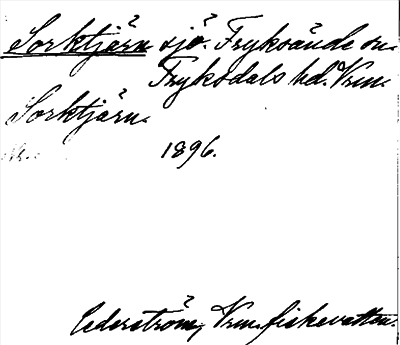 Sorktjärn sjö. Fryksände sn.
Fryksdals hd. Vrm.
Sorktjärn.
1896.
Cederström, Vrm. fiskevatten.